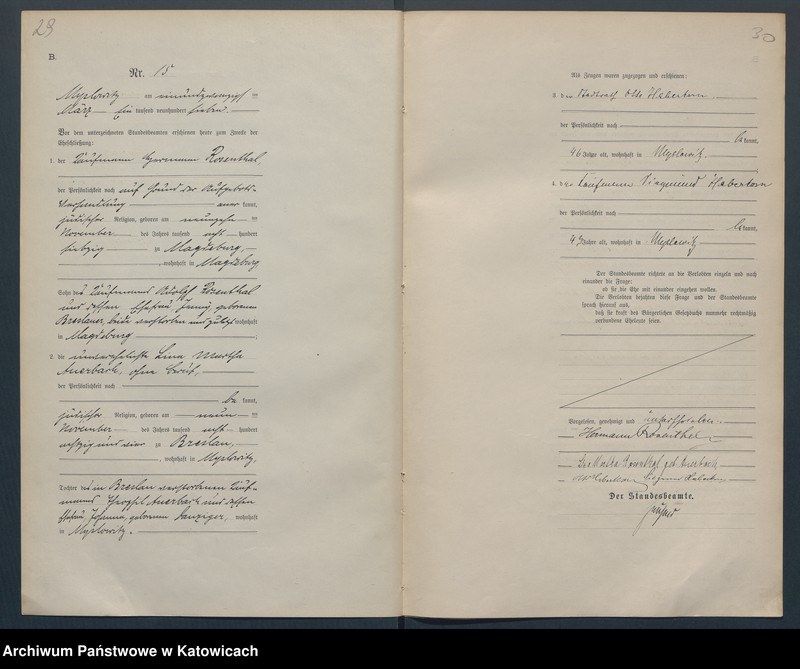 29
B.
Nr. 15
Myslowitz am einundzwanzigsten
März Ein tausend neunhundert sieben
Vor dem unterzeichneten Standesbeamten erschienen heute zum Zwecke der
Eheschließung:
1. der Kaufmann Hermann Rosenthal,
der Persönlichkeit nach auf Grund der Aufgebots-
verhandlung aner kannt,
jüdischer Religion, geboren am neunzehn ten
November des Jahres tausend acht hundert
siebzig zu Magdeburg,
, wohnhaft in Magdeburg
Sohn des Kaufmanns Rudolf Rosenthal
und dessen Ehefrau, Jenny, geborenen
Breslauer, beide verstorben und zuletzt wohnhaft
in Magdeburg ;
2. die unverehelichte Lina Martha
Auerbach, ohne Beruf,
der Persönlichkeit nach
be kannt,
jüdischer Religion, geboren am neun ten
November des Jahres tausend acht hundert
achtzig und vier zu Breslau,
, wohnhaft in Myslowitz,
Tochter des in Breslau verstorbenen Kauf-
manns Auerbach und dessen
Ehefrau, Johanna, geborenen Danziger, wohnhaft
in Myslowitz.
30
Als Zeugen waren zugezogen und erschienen:
3. der Stadtrath Otto Haberkorn
der Persönlichkeit nach
be kannt,
46 Jahre alt, wohnhaft in Myslowitz.
4. der Kaufmann Siegmund Haberkorn
der Persönlichkeit nach
be kannt,
Jahre alt, wohnhaft in Myslowitz
Der Standesbeamte richtete an die Verlobten einzeln und nach
einander die Frage:
ob sie die Ehe mit einander eingehen wollen.
Die Verlobten bejahten diese Frage und der Standesbeamte
sprach hierauf aus,
daß sie kraft des Bürgerlichen Gesetzbuchs nunmehr rechtmäßig
verbundene Eheleute seien.
Vorgelesen, genehmigt und unterschrieben.
Hermann Rosenthal
Lina Martha Rosenthal geb. Auerbach
Siegmund Haberkorn
Der Standesbeamte.
Archiwum Państwowe w Katowicach